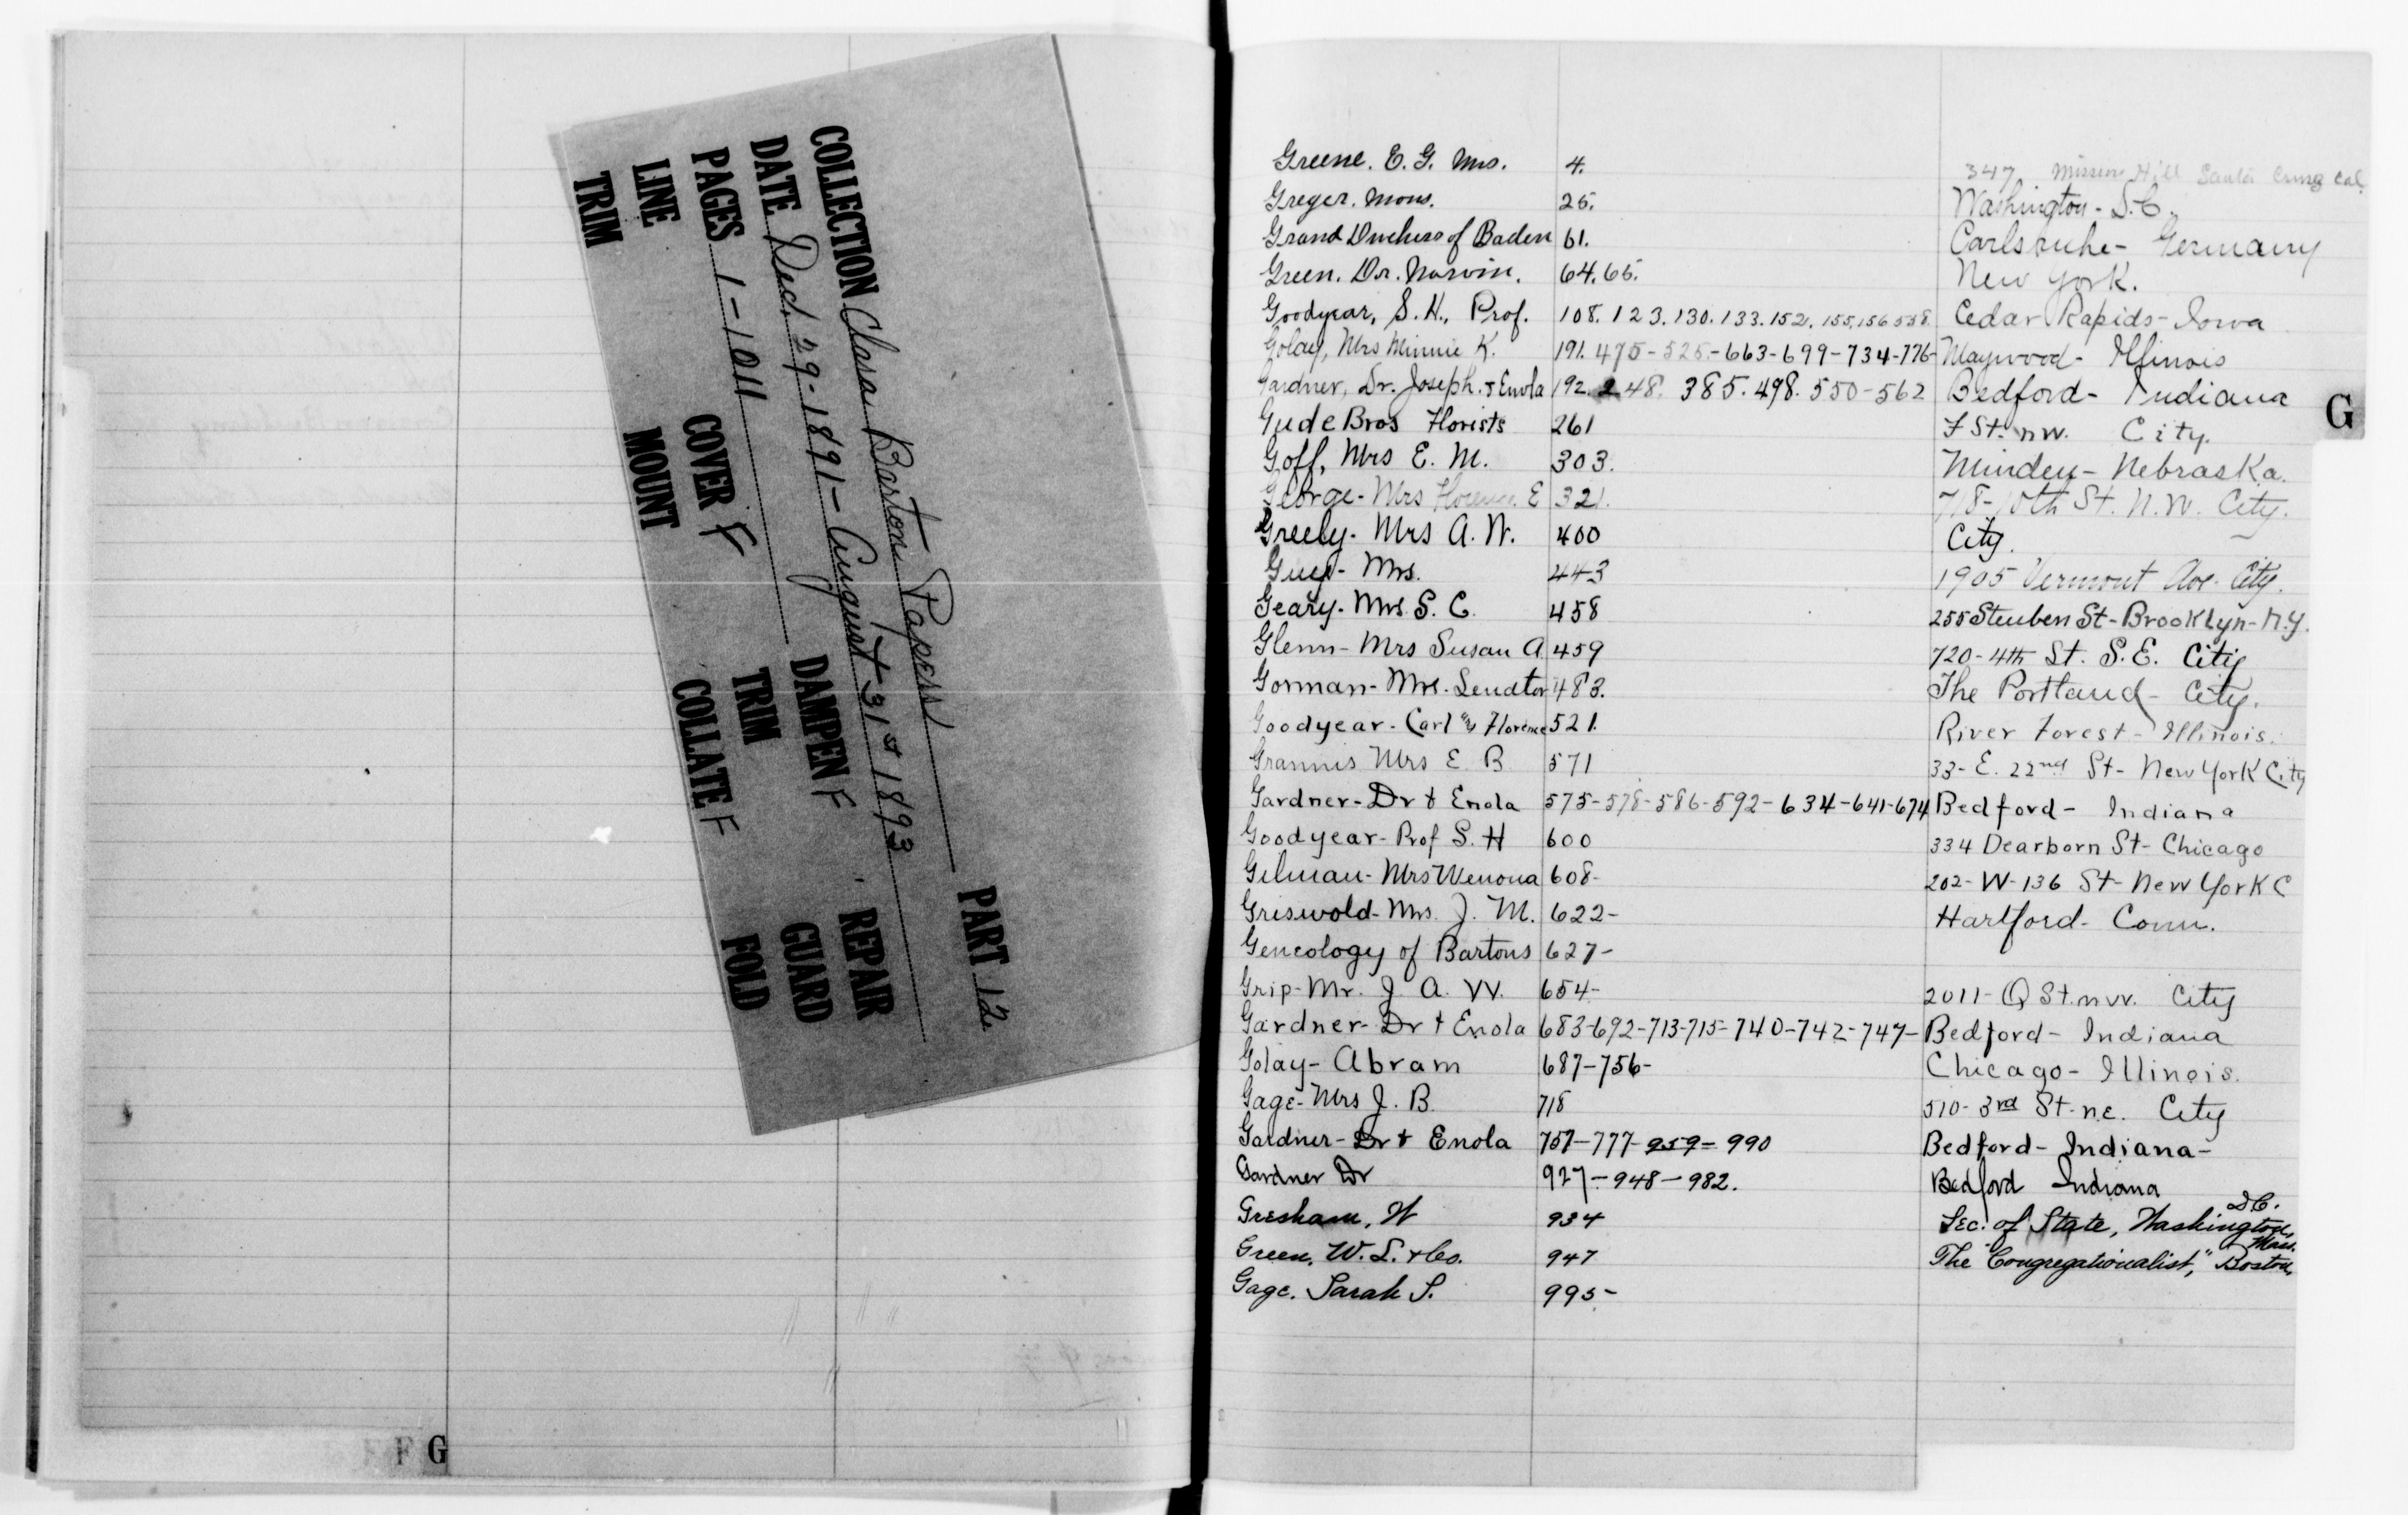 COLLECTION Clara Barton Papers PART 12
DATE Dec. 29-1891-August 31st 1893
PAGES 1-1011 DAMPEN F REPAIR
LINE COVER F TRIM GUARD
TRIM MOUNT COLLATE F FOLD
F G
G
Greene. E. G. Mrs. 4. 347 Mission Hill Santa Cruz Cal.
Greger. Mons. 25. Washington - D.C.
Grand Duchess of Baden 61. Carlsruhe - Germany
Green. Dr. Norvin. 64.65. New York.
Goodyear, S. H., Prof. 108. 123. 130. 133. 152. 155. 156 558. Cedar Rapids - Iowa
Golay, Mrs Minnie K. 191. 475 - 525 - 663 - 699 - 734 - 776 - Maywood - Illinois
Gardner, Dr. Joseph. & Enola 192. 248. 385. 498. 550 - 562 Bedford - Indiana
Gude Bros Florists 261 F St. nw. City.
Goff, Mrs E. M. 303. Minden - Nebraska.
George - Mrs Florence. E 321. 718 - 10th St. N.W. City.
Greely - Mrs A. W. 400 City.
Mrs. 443 1905 Vermont Ave. City.
Geary - Mrs. S. C. 458 255 Steuben St - Brooklyn - N.Y.
Glenn - Mrs Susan A. 459 720 - 4th St. S.E. City
Gorman - Mrs. Senator 483. The Portland - City.
Goodyear - Carl & Florence 521. River Forest - Illinois.
Grannis Mrs E. B 571 33 - E. 22nd St - New York City
Gardner - Dr & Enola 575 - 578 - 586 - 592 - 634 - 641 - 674 Bedford - Indiana
Goodyear - Prof S. H 600 334 Dearborn St - Chicago
Gilman - Mrs Wenona 608 - 202 - W - 136 St - New York C
Griswold - Mrs. J. M. 622 - Hartford - Conn.
Geneology of Bartons 627 -
Grip - Mr. J. A. W. 654 - 2011 - Q St. nw. City
Gardner - Dr & Enola 683 - 692 - 713 - 715 - 740 - 742 - 747 - Bedford - Indiana
Golay - Abram 687 - 756 - Chicago - Illinois.
Gage - Mrs J. B. 718 510 - 3rd St - n.e. City
Gardner - Dr & Enola 757 - 777 - 959 - 990 Bedford - Indiana -
Gardner Dr 927 - 948 - 982. Bedford Indiana
Gresham, W 934 Sec. of State, Washington, D.C.
Green, W. L. & Co. 947 The "Congregationalist," Boston, Mass.
Gage. Sarah S. 995 -